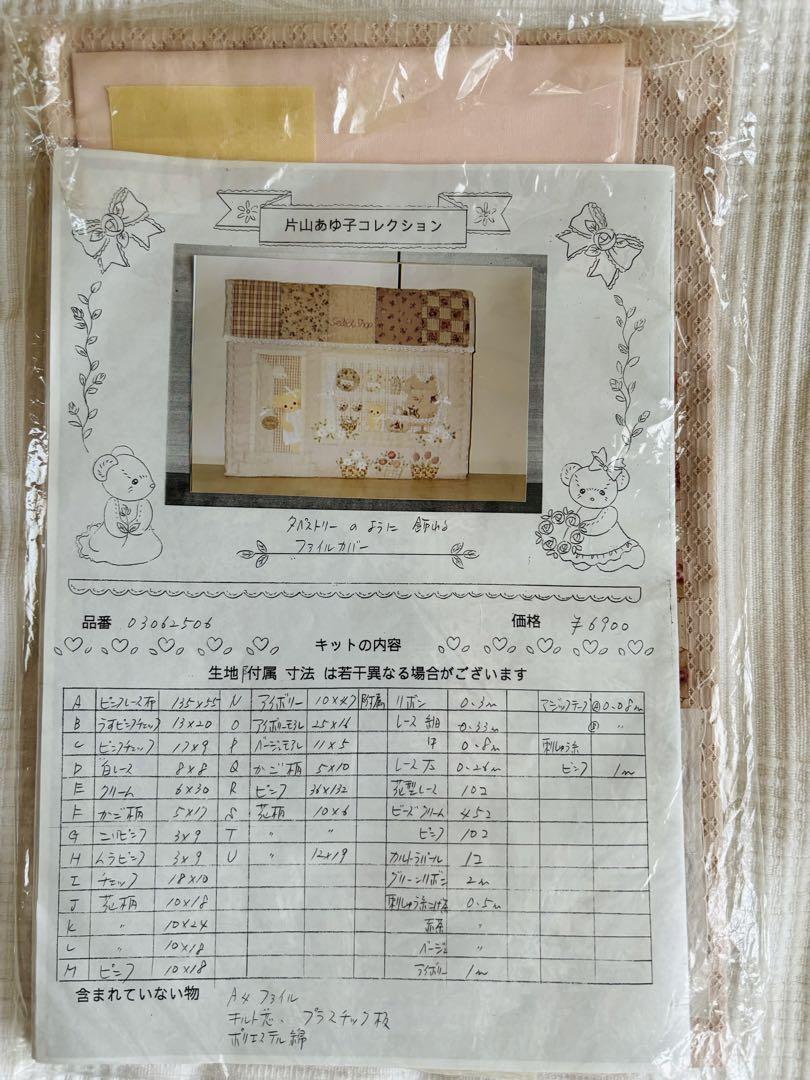 片山あゆ子コレクション
タペストリー のように 飾れる
ファイルカバー
品番 03062506 価格 ¥6900
キットの内容
生地 付属 寸法 は若干異なる場合がございます
A ピンクレース布 135×55 N アイボリー 10×47 付属 リボン 0.3m マジックテープ 0.08m
B うすピンクチェック 13×20 O 25×16 レース 細 0.33m 〃
C ピンクチェック 17×9 P 11×5 中 0.8m 刺しゅう糸
D 白レース 8×8 Q かご柄 5×10 レース 0.26m ピンク 1m
E クリーム 6×30 R ピンク 36×132 花型レース 10コ
F かご柄 5×17 S 花柄 10×6 ビーズクリーム 45コ
G こいピンク 3×9 T 〃 〃 ピンク 10コ
H ムラピンク 3×9 U 〃 12×19 1コ
I チェック 18×10 グリーンリボン 2m
J 花柄 10×18 刺しゅう糸こげ茶 0.5m
K 〃 10×24 赤茶 〃
L 〃 10×18 ベージュ 〃
M ピンク 10×18 アイボリー 1m
含まれていない物 A4ファイル
キルト芯、プラスチック板
ポリエステル綿